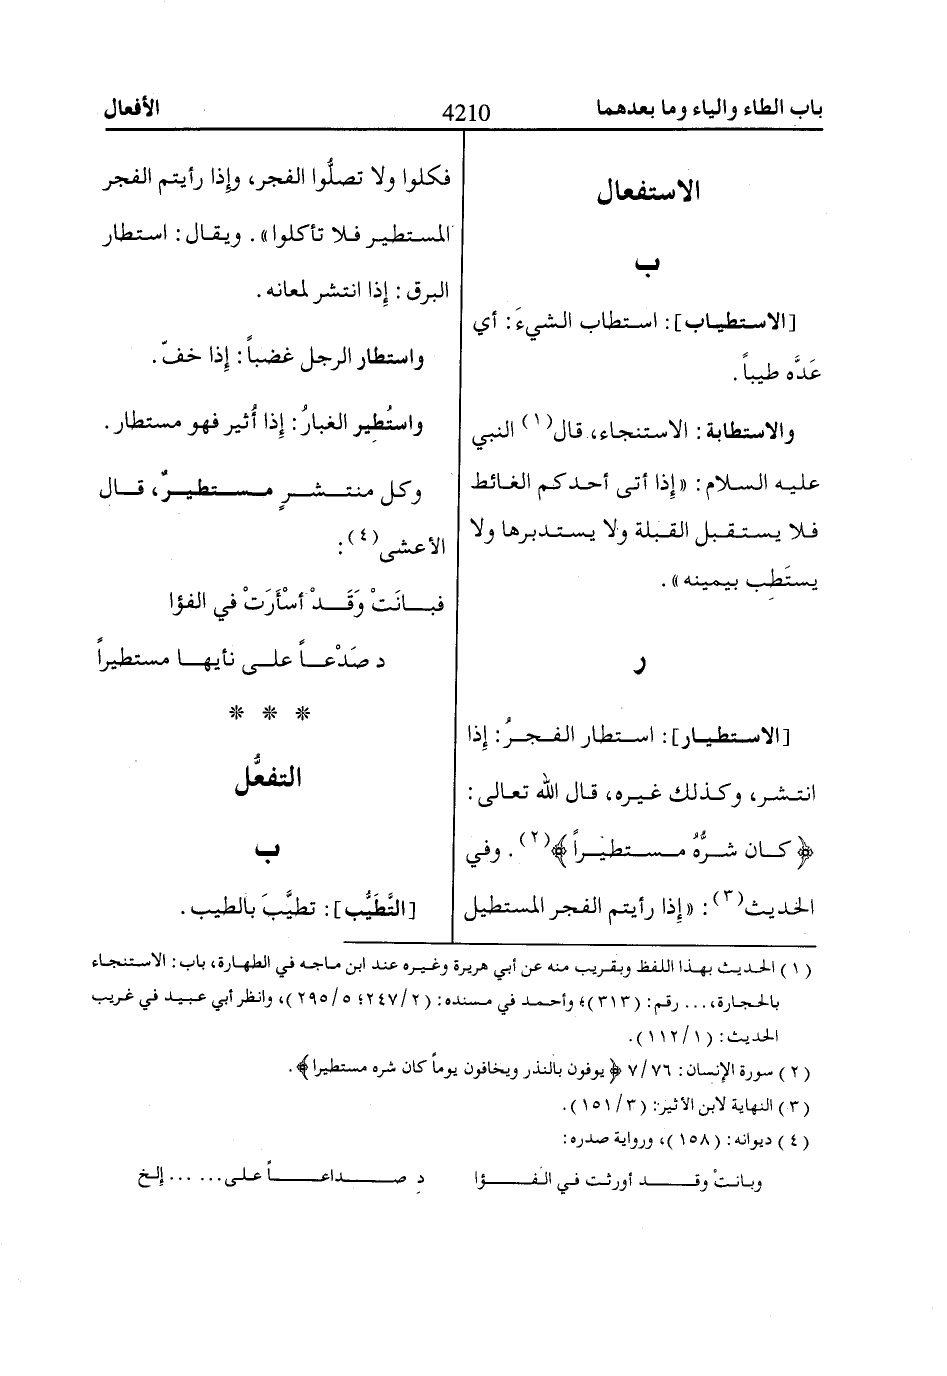 باب الطاء والياء وما بعدهما
4210
الأفعال
الاستفعال
ب
[الاستطياب]: استطاب الشيءَ: أي
عَدَّه طيباً.
والاستطابة: الاستنجاء، قال(١) النبي
عليه السلام: «إذا أتى أحدكم الغائط
فلا يستقبل القبلة ولا يستدبرها ولا
يستَطِب بيمينه».
ر
[الاستطيار]: استطار الفجرُ: إذا
انتشر، وكذلك غيره، قال الله تعالى:
﴿كان شرُّهُ مستطيراً﴾(٢). وفي
الحديث(٣): «إذا رأيتم الفجر المستطيل
فكلوا ولا تصلُّوا الفجر، وإذا رأيتم الفجر
المستطير فلا تأكلوا». ويقال: استطار
البرق: إذا انتشر لمعانه.
واستطار الرجل غضباً: إذا خفّ.
واستُطِير الغبارُ: إذا أُثير فهو مستطار.
وكل منتشرٍ مستطيرٌ، قال
الأعشى(٤):
فبانَتْ وَقَدْ أسْأَرَتْ في الفؤا
د صَدْعاً على نأيها مستطيراً
* * *
التفعُّل
ب
[التَّطَيُّب]: تطيَّبَ بالطيب.
(١) الحديث بهذا اللفظ وبقريب منه عن أبي هريرة وغيره عند ابن ماجه في الطهارة، باب: الاستنجاء
بالحجارة، ... رقم: (٣١٣)؛ وأحمد في مسنده: (٢/٢٤٧؛ ٥/٢٩٥)، وانظر أبي عبيد في غريب
الحديث: (١/١١٢).
(٢) سورة الإنسان: ٧/٧٦ ﴿يوفون بالنذر ويخافون يوماً كان شره مستطيرا﴾.
(٣) النهاية لابن الأثير: (٣/١٥١).
(٤) ديوانه: (١٥٨)، ورواية صدره:
وبانتْ وقد أورثت في الفؤا د صداعاً على... ... إلخ